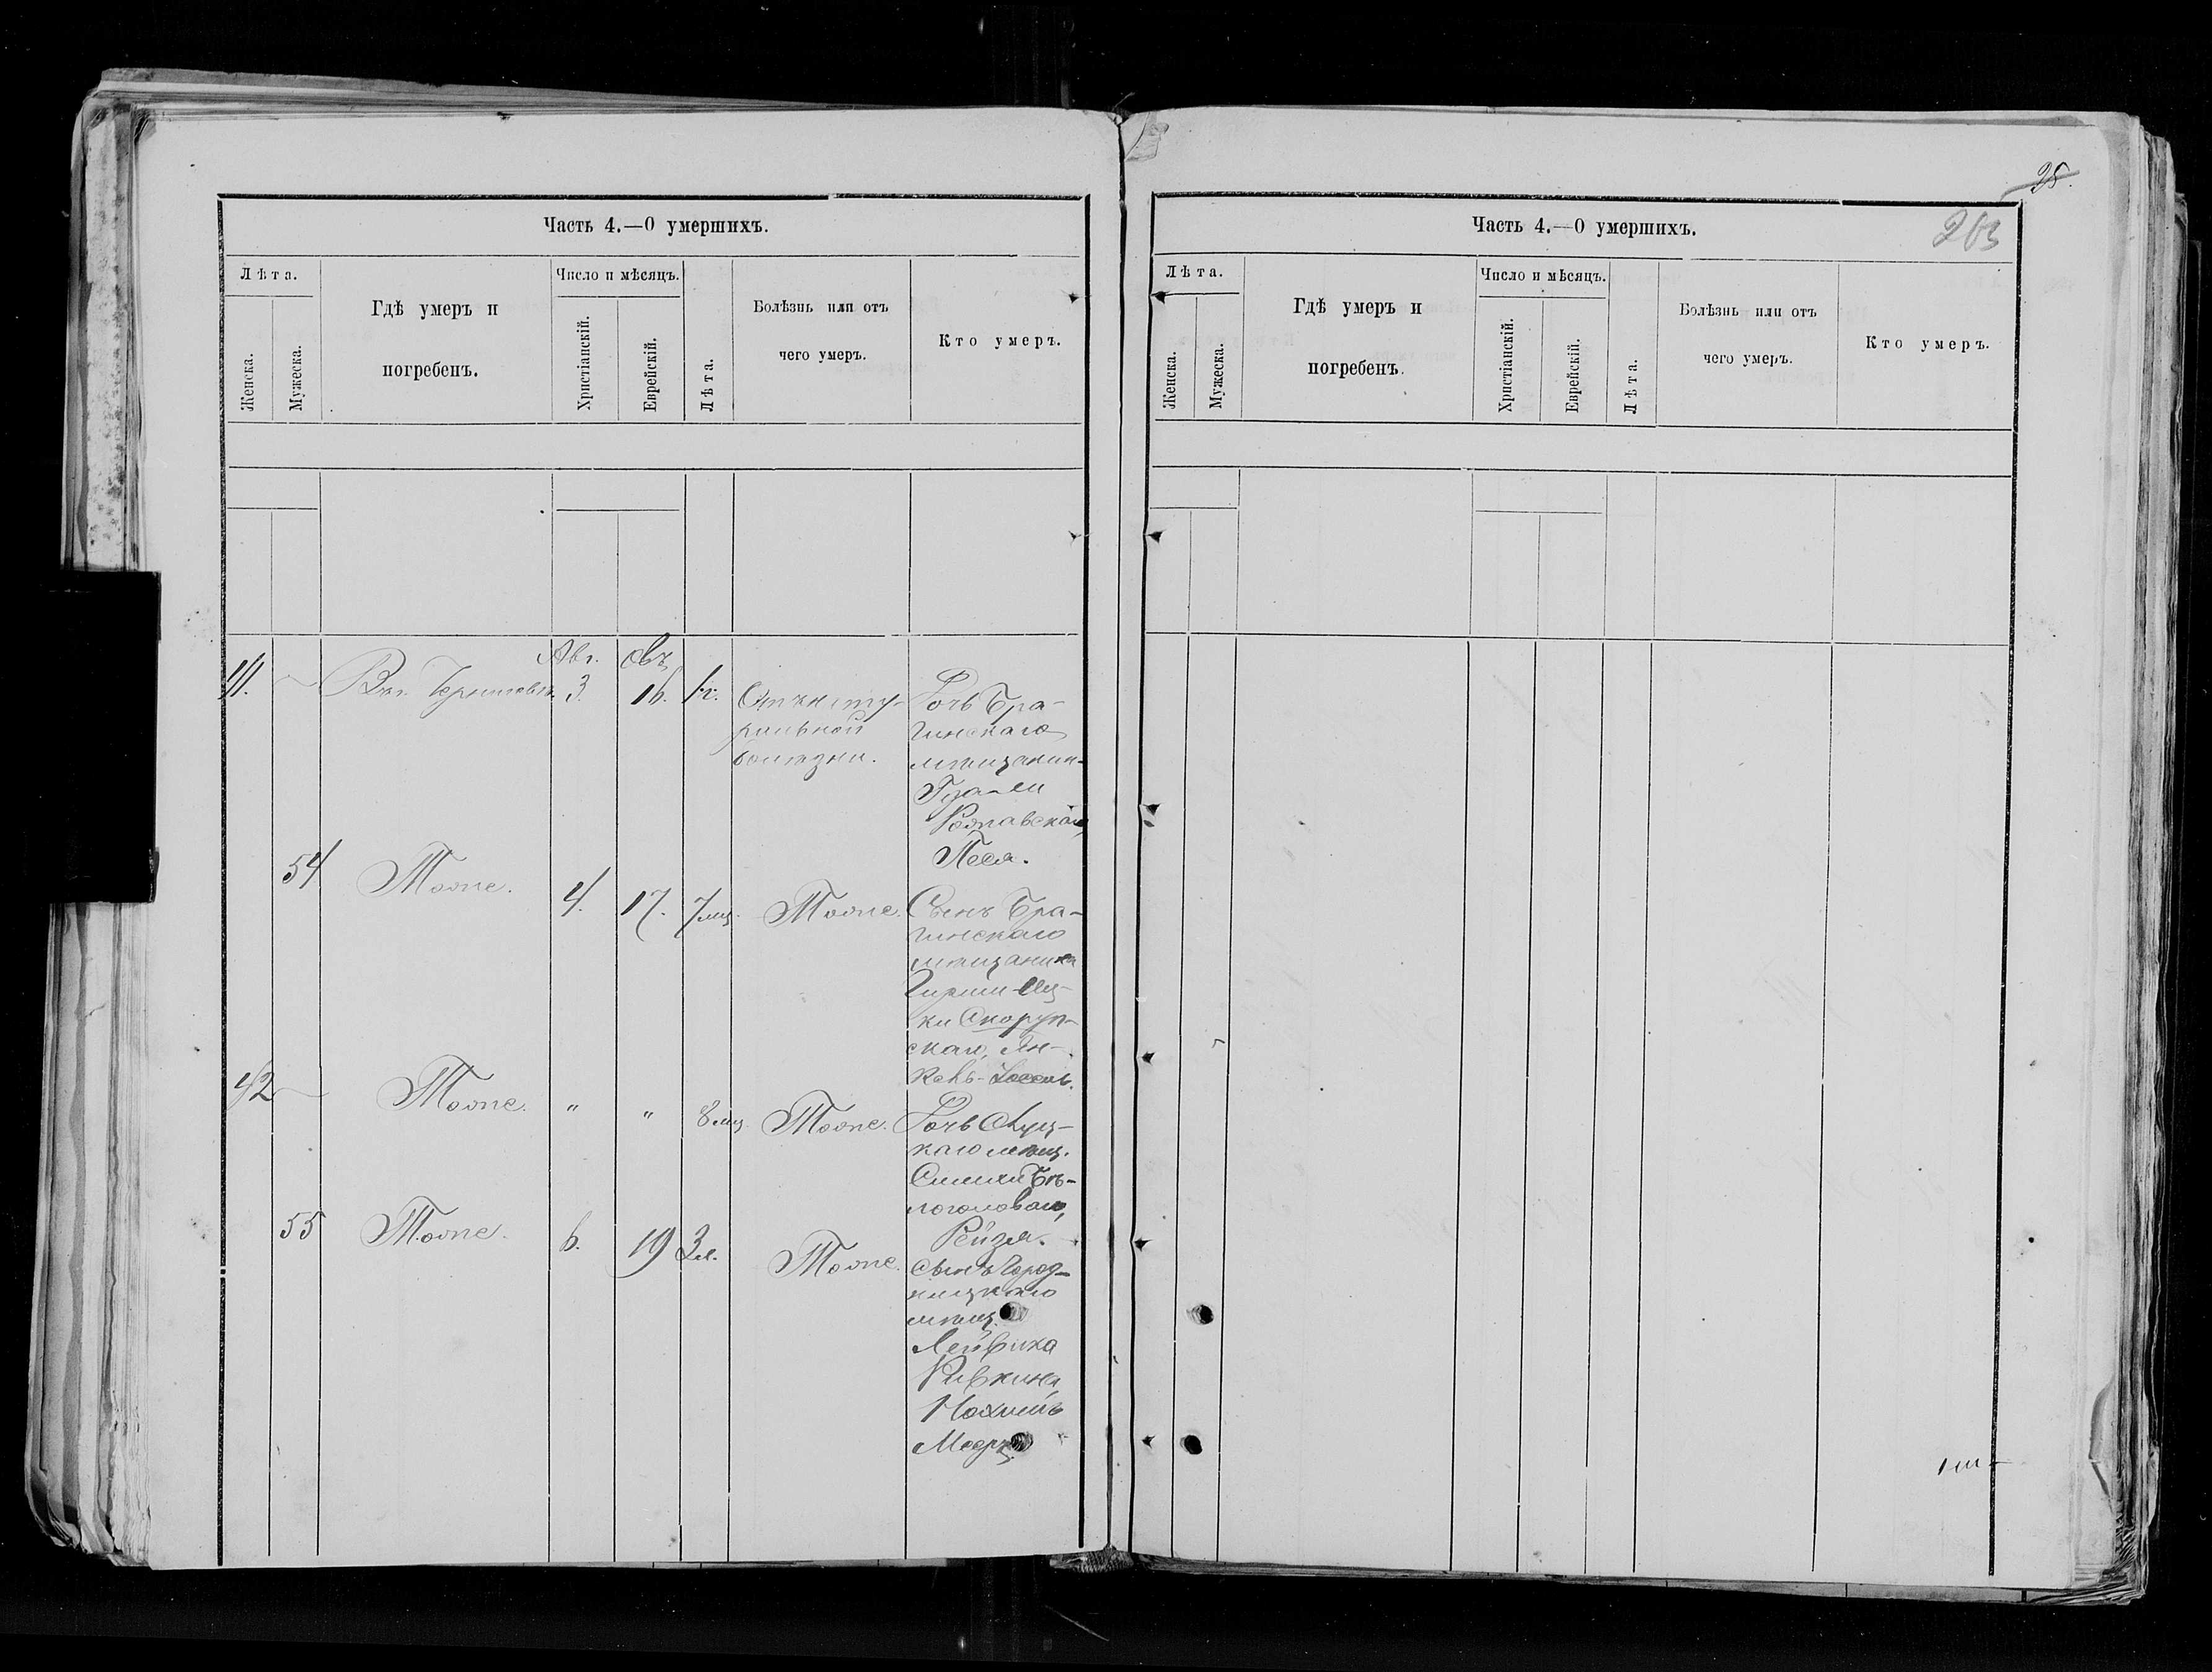 25.
263
Часть 4.—О умершихъ.
Лѣта.
Женска.
Мужеска.
Гдѣ умеръ и
погребенъ.
Число и мѣсяцъ.
Христіанскій.
Еврейскій.
Лѣта.
Болѣзнь или отъ
чего умеръ.
Кто умеръ.
41.
Въ г. Черниговѣ.
Авг.
3.
Овъ
16.
1 г.
Отъ нату-
ральной
болѣзни.
Дочь Бра-
гинскаго
мѣщанин-

Песя.
54
Тоже.
4.
17.
7 мц.
Тоже.
Сынъ Бра-
гинскаго
мѣщанина
Гирши-Иц-
ки Скоруп-
скаго, Ян-
кель-Іоссель.
42
Тоже.
"
"
8 мц.
Тоже.
Дочь Слуц-
каго мѣщ.
Симхи Бѣ-
логоловаго,
Рейзя.
55
Тоже.
6.
19
3 л.
Тоже.
Сынъ Город-
ницкаго
мѣщ.
Лейвика
Ривкина,
Нохимъ

Часть 4.—О умершихъ.
Лѣта.
Женска.
Мужеска.
Гдѣ умеръ и
погребенъ.
Число и мѣсяцъ.
Христіанскій.
Еврейскій.
Лѣта.
Болѣзнь или отъ
чего умеръ.
Кто умеръ.